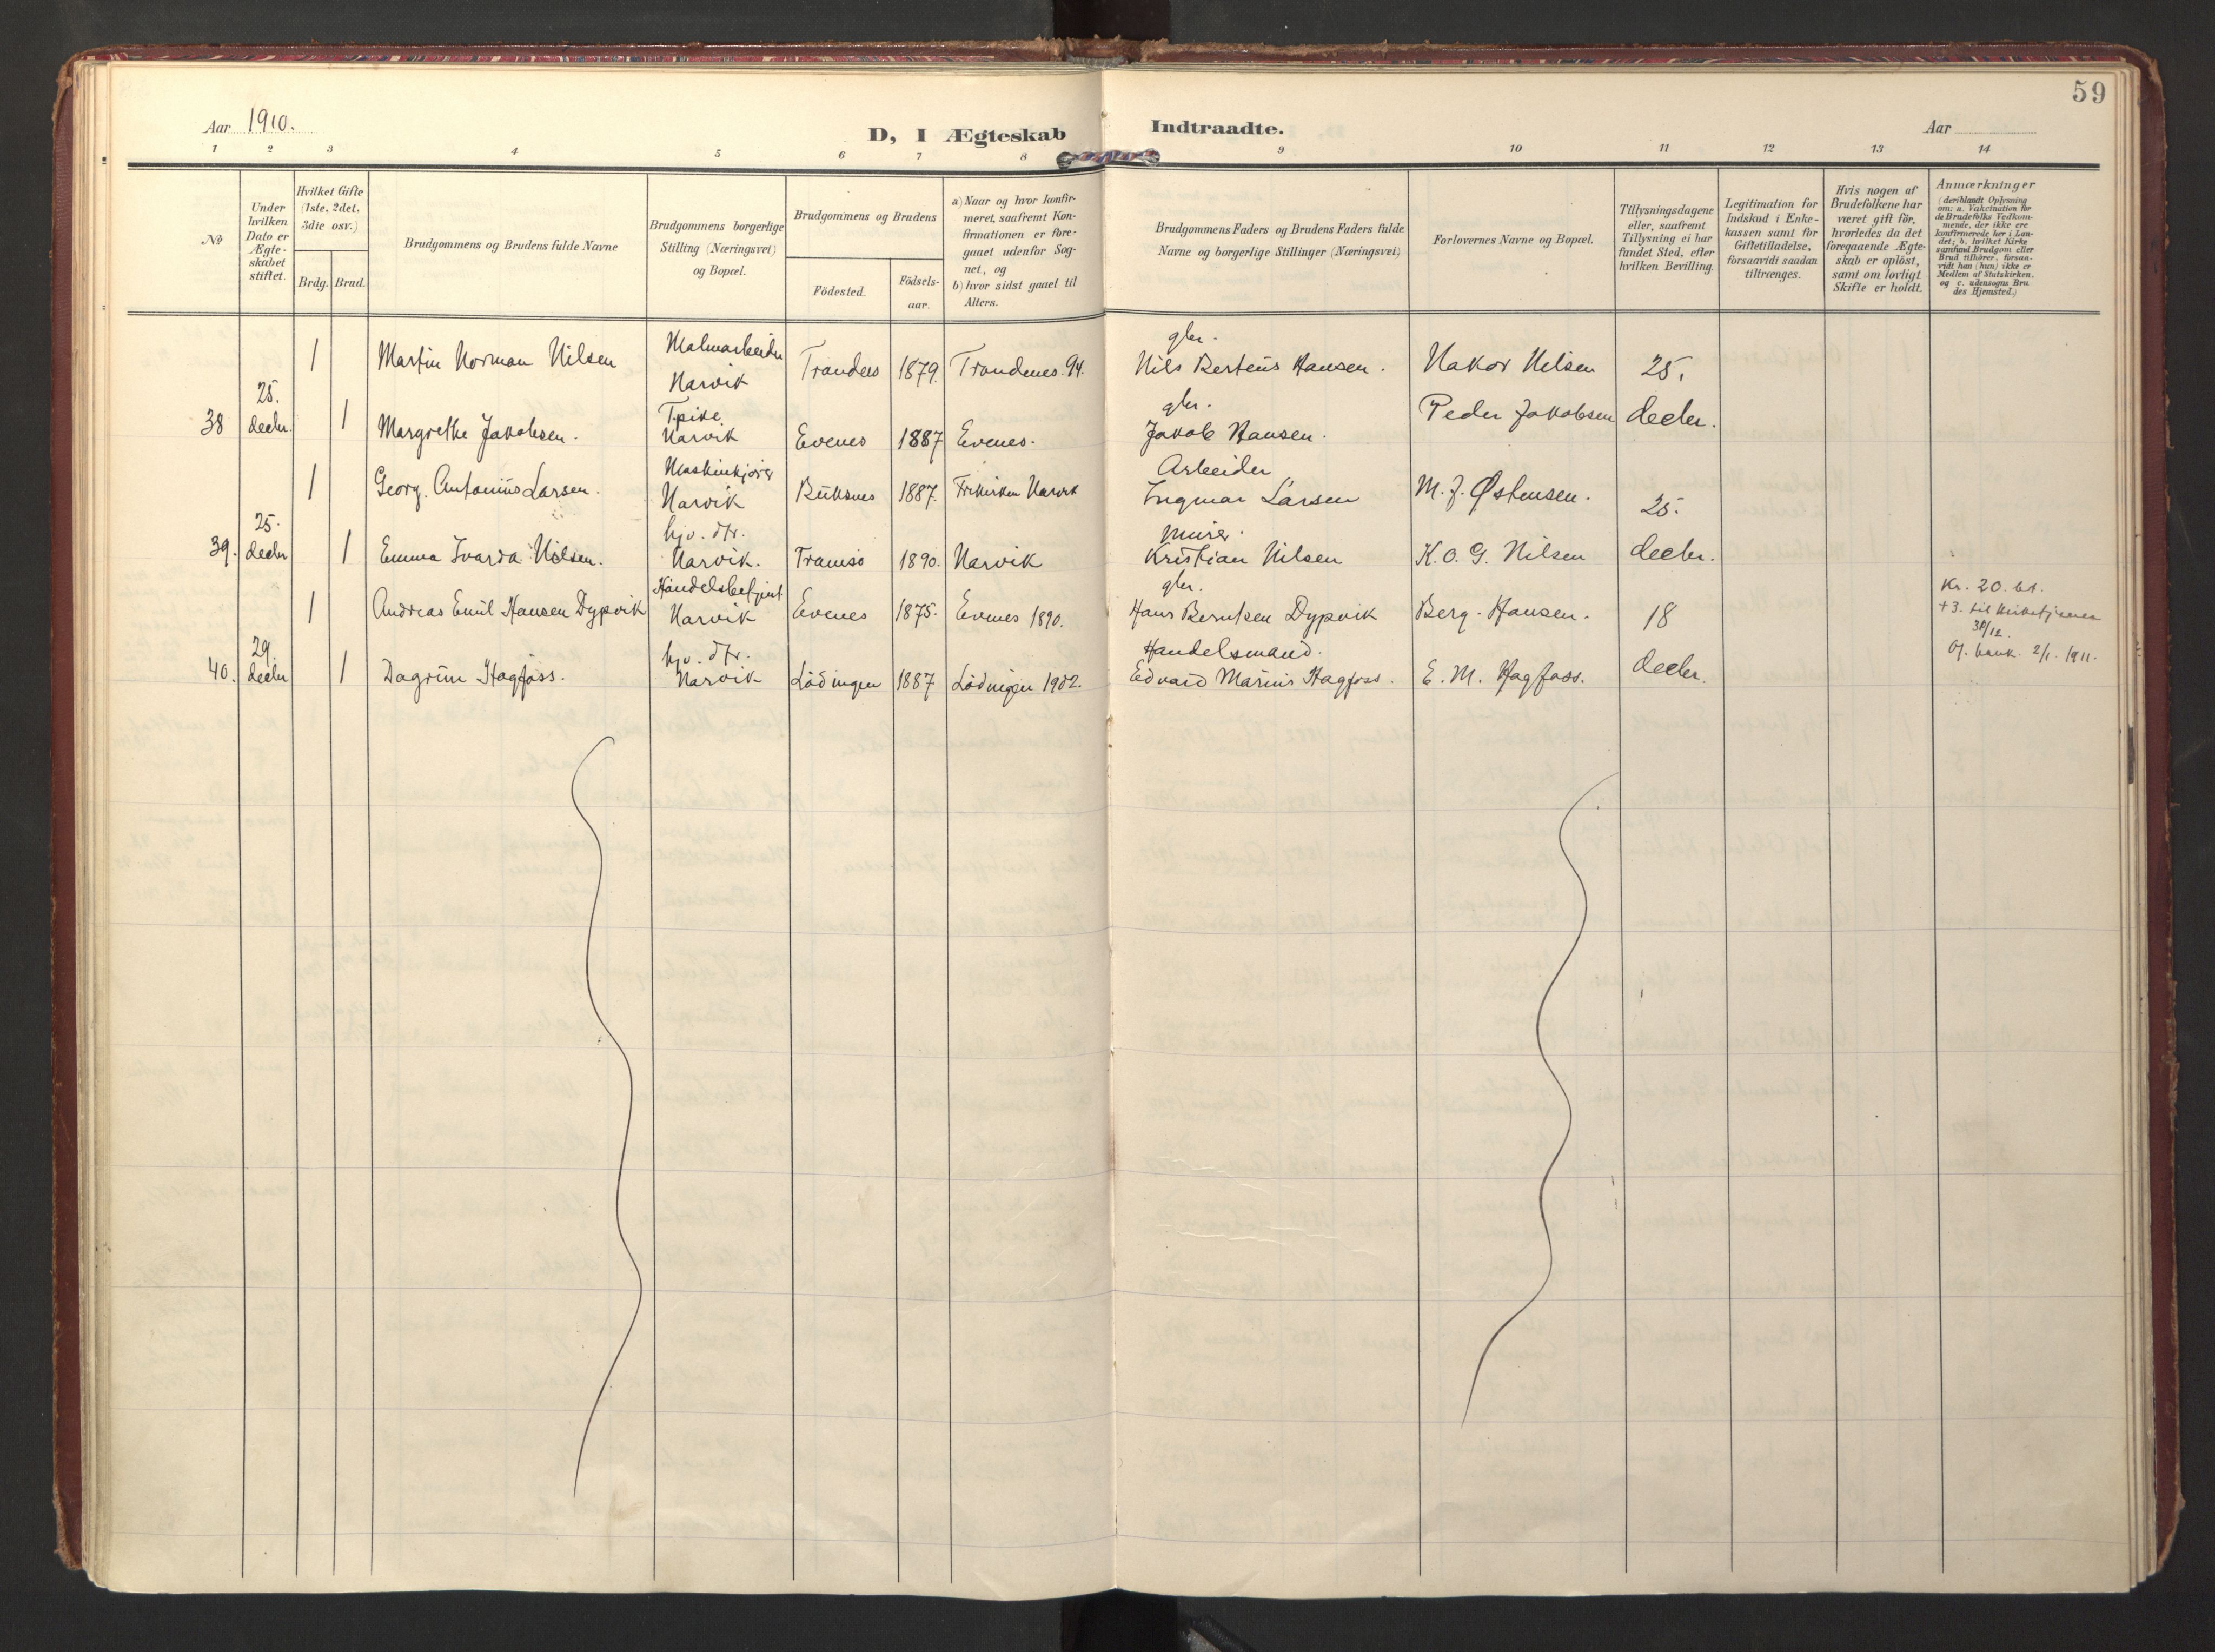 59
Aar 1910.
D, I Ægteskab Indtraadte.
Aar
1 2 3 4 5 6 7 8 9 10 11 12 13 14
No
Under hvilken Dato er Ægte-skabet stiftet.
Hvilket Gifte (1ste, 2det, 3die osv.)
Brdg. Brud.
Brudgommens og Brudens fulde Navne
Brudgommens borgerlige Stilling (Næringsvei) og Bopæl.
Brudgommens og Brudens
Födested.
Födsels-aar.
a) Naar og hvor konfir-meret, saafremt Kon-firmationen er fore-gaaet udenfor Sog-net, og
b) hvor sidst gaaet til Alters.
Brudgommens Faders og Brudens Faders fulde Navne og borgerlige Stillinger (Næringsvei)
Forlovernes Navne og Bopæl.
Tillysningsdagene eller, saafremt Tillysning ei har fundet Sted, efter hvilken Bevilling.
Legitimation for Indskud i Enke-kassen samt for Giftetilladelse, forsaavidt saadan tiltrænges.
Hvis nogen af Brudefolkene har været gift för, hvorledes da det foregaaende Ægte-skab er oplöst, samt om lovligt Skifte er holdt.
Anmærkninger
(deriblandt Oplysning om: a. Vakcination for de Brudefolks Vedkom-mende, der ikke ere konfirmerede her i Lan-det; b. hvilket Kirke samfund Brudgom eller Brud tilhörer, forsaa-vidt han (hun) ikke er Medlem af Statskirken, og c. udensogns Bru des Hjemsted.)
1 Martin Norman Nilsen Malmarbeider Narvik Trandees 1879. Trondenes. 94. gbr. Nils Berteus Hansen. Hakor Nilsen 25.
38 25. decbr. 1 Margrethe Jakobsen. Tpike. Narvik Evenes 1887 Evenes. gbr. Jakob Hansen. Peder Jakobsen decbr.
1 Georg. Antonius Larsen. Maskinkjører Narvik Buksnes 1887. Frikirken Narvik Arbeider Ingmar Larsen M. J. Østensen. 25.
39. 25. decbr 1 Emma Ivarda Nilsen. hjv. dtr. Narvik. Tromsö 1890. Narvik murer. Kristian Nilsen K. O. G. Nilsen decbr.
1 Andreas Emil Hansen Dypvik Handelsbetjent Narvik Evenes 1875. Evenes 1890. gbr. Hans Berntsen Dypvik Berg-Hansen. 18
Kr. 20. bt.
+3. til kirketjener
31/12.
Of. bank. 2/1. 1911.
40. 29. decbr 1 Dagrun Hagfoss. hjv. dtr. Narvik Lödingen 1887 Lödingen 1902. Handelsmand. Edvard Marius Hagfoss. E. M. Hagfoss. decbr.